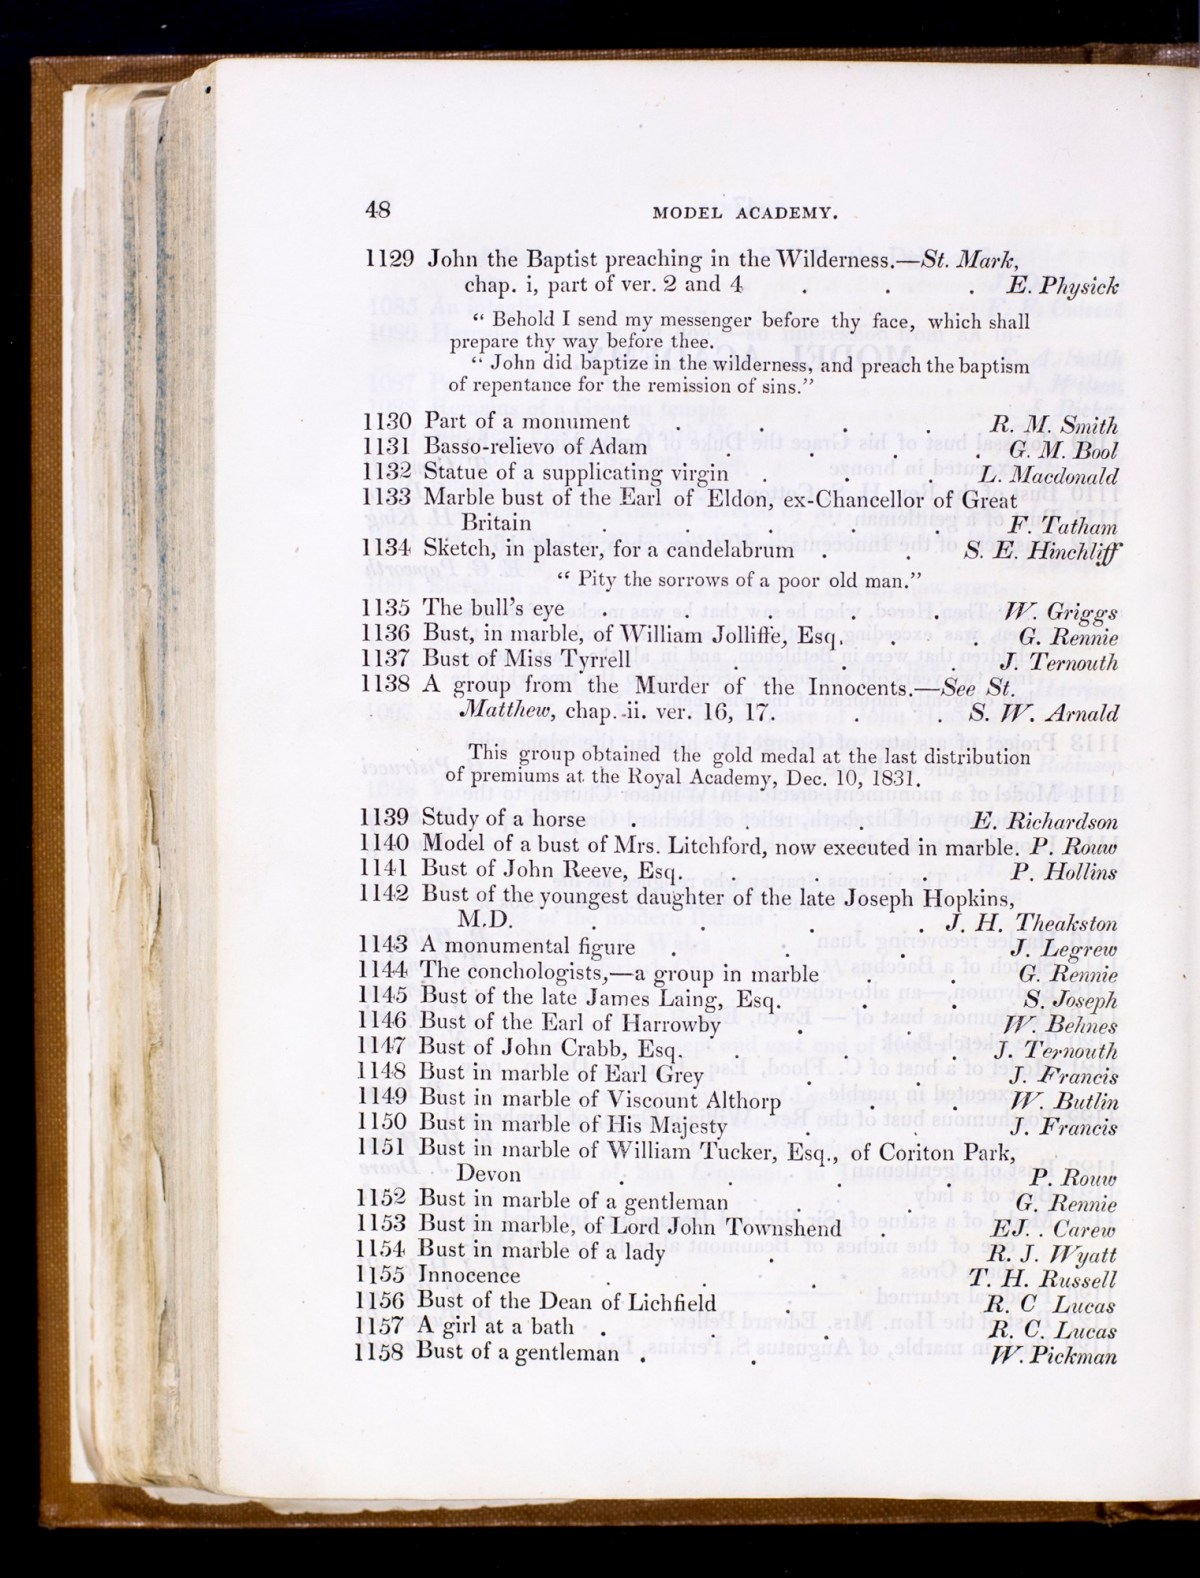 48
MODEL ACADEMY.
1129 John the Baptist preaching in the Wilderness.—St. Mark,
chap. i, part of ver. 2 and 4 . . . E. Physick
“ Behold I send my messenger before thy face, which shall
prepare thy way before thee.
“ John did baptize in the wilderness, and preach the baptism
of repentance for the remission of sins.”
1130 Part of a monument . . . . R. M. Smith
1131 Basso-relievo of Adam . . . . G. M. Bool
1132 Statue of a supplicating virgin . . . L. Macdonald
1133 Marble bust of the Earl of Eldon, ex-Chancellor of Great
Britain . . . . F. Tatham
1134 Sketch, in plaster, for a candelabrum . . S. E. Hinchliff
“ Pity the sorrows of a poor old man.”
1135 The bull’s eye . . . . . W. Griggs
1136 Bust, in marble, of William Jolliffe, Esq. . . G. Rennie
1137 Bust of Miss Tyrrell . . . J. Ternouth
1138 A group from the Murder of the Innocents.—See St.
Matthew, chap. ii. ver. 16, 17. . . S. W. Arnald
This group obtained the gold medal at the last distribution
of premiums at the Royal Academy, Dec. 10, 1831.
1139 Study of a horse . . . E. Richardson
1140 Model of a bust of Mrs. Litchford, now executed in marble. P. Rouw
1141 Bust of John Reeve, Esq. . . . P. Hollins
1142 Bust of the youngest daughter of the late Joseph Hopkins,
M.D. . . . . J. H. Theakston
1143 A monumental figure . . . J. Legrew
1144 The conchologists,—a group in marble . . G. Rennie
1145 Bust of the late James Laing, Esq. . . S. Joseph
1146 Bust of the Earl of Harrowby . . W. Behnes
1147 Bust of John Crabb, Esq. . . . J. Ternouth
1148 Bust in marble of Earl Grey . . J. Francis
1149 Bust in marble of Viscount Althorp . . W Butlin
1150 Bust in marble of His Majesty . . J. Francis
1151 Bust in marble of William Tucker, Esq., of Coriton Park,
Devon . . . . P. Rouw
1152 Bust in marble of a gentleman . . G. Rennie
1153 Bust in marble, of Lord John Townshend . EJ. . Carew
1154 Bust in marble of a lady . R. J. Wyatt
1155 Innocence . . . T. H. Russell
1156 Bust of the Dean of Lichfield . R. C Lucas
1157 A girl at a bath . . . R. C. Lucas
1158 Bust of a gentleman . . W. Pickman